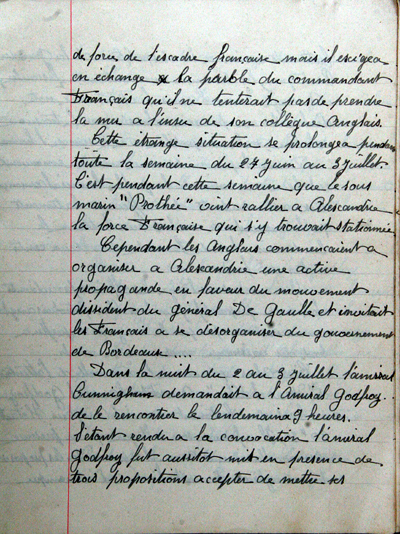 de force de l'escadre française mais il esigea
en échange la parole du commandant
Français qu'il ne tenterait pas de prendre
la mer a l'insu de son collègue Anglais.
Cette étrange situation se prolongea pendant
toute la semaine du 27 juin au 3 juillet.
C'est pendant cette semaine que le sous
marin "Prothée" vint rallier a Alescandrie
la force Française qui s'y trouvait stationnée
Cependant les Anglais commencaient a
organiser a Alescandrie une active
propagande en faveur du mouvement
dissident du général De Gaulle et invitait
les Français a se desorganiser du gouvernement
de Bordeause ....
Dans la nuit du 2 au 3 juillet l'amiral
Cunnigham demandait a l'Amiral Godfroy.
de le rencontrer le lendemain a 9 heures.
S'étant rendu a la convocation l'amiral
Godfroy fut aussitot mit en presence de
trois propositions accepter de mettre ses